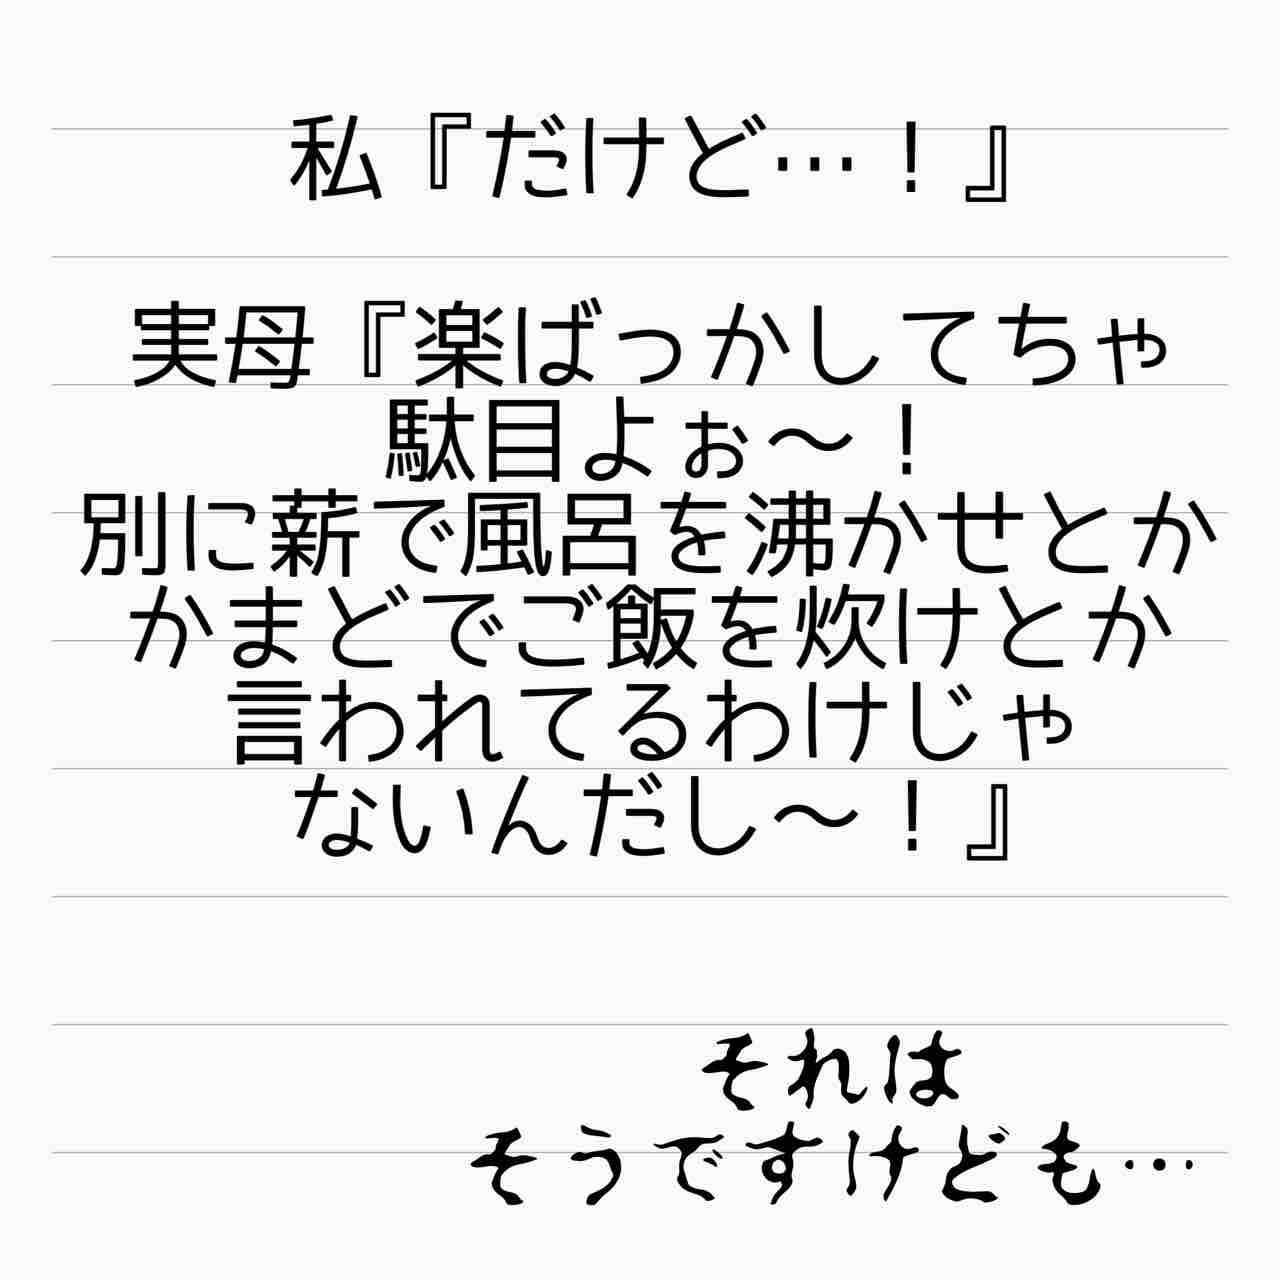 私『だけど…！』
実母『楽ばっかしてちゃ
駄目よぉ〜！
別に薪で風呂を沸かせとか
かまどでご飯を炊けとか
言われてるわけじゃ
ないんだし〜！』
それは
そうですけども…